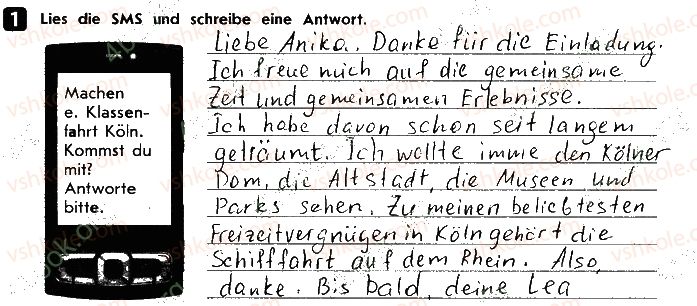 1 Lies die SMS und schreibe eine Antwort.
Machen
e. Klassen-
fahrt Köln.
Kommst du
mit?
Antworte
bitte.
Liebe Anika. Danke für die Einladung.
Ich freue mich auf die gemeinsame
Zeit und gemeinsamen Erlebnisse.
Ich habe davon schon seit langem
geträumt. Ich wollte imme den Kölner
Dom, die Altstadt, die Museen und
Parks sehen. Zu meinen beliebtesten
Freizeitvergnügen in Köln gehört die
Schifffahrt auf dem Rhein. Also,
danke. Bis bald, deine Lea